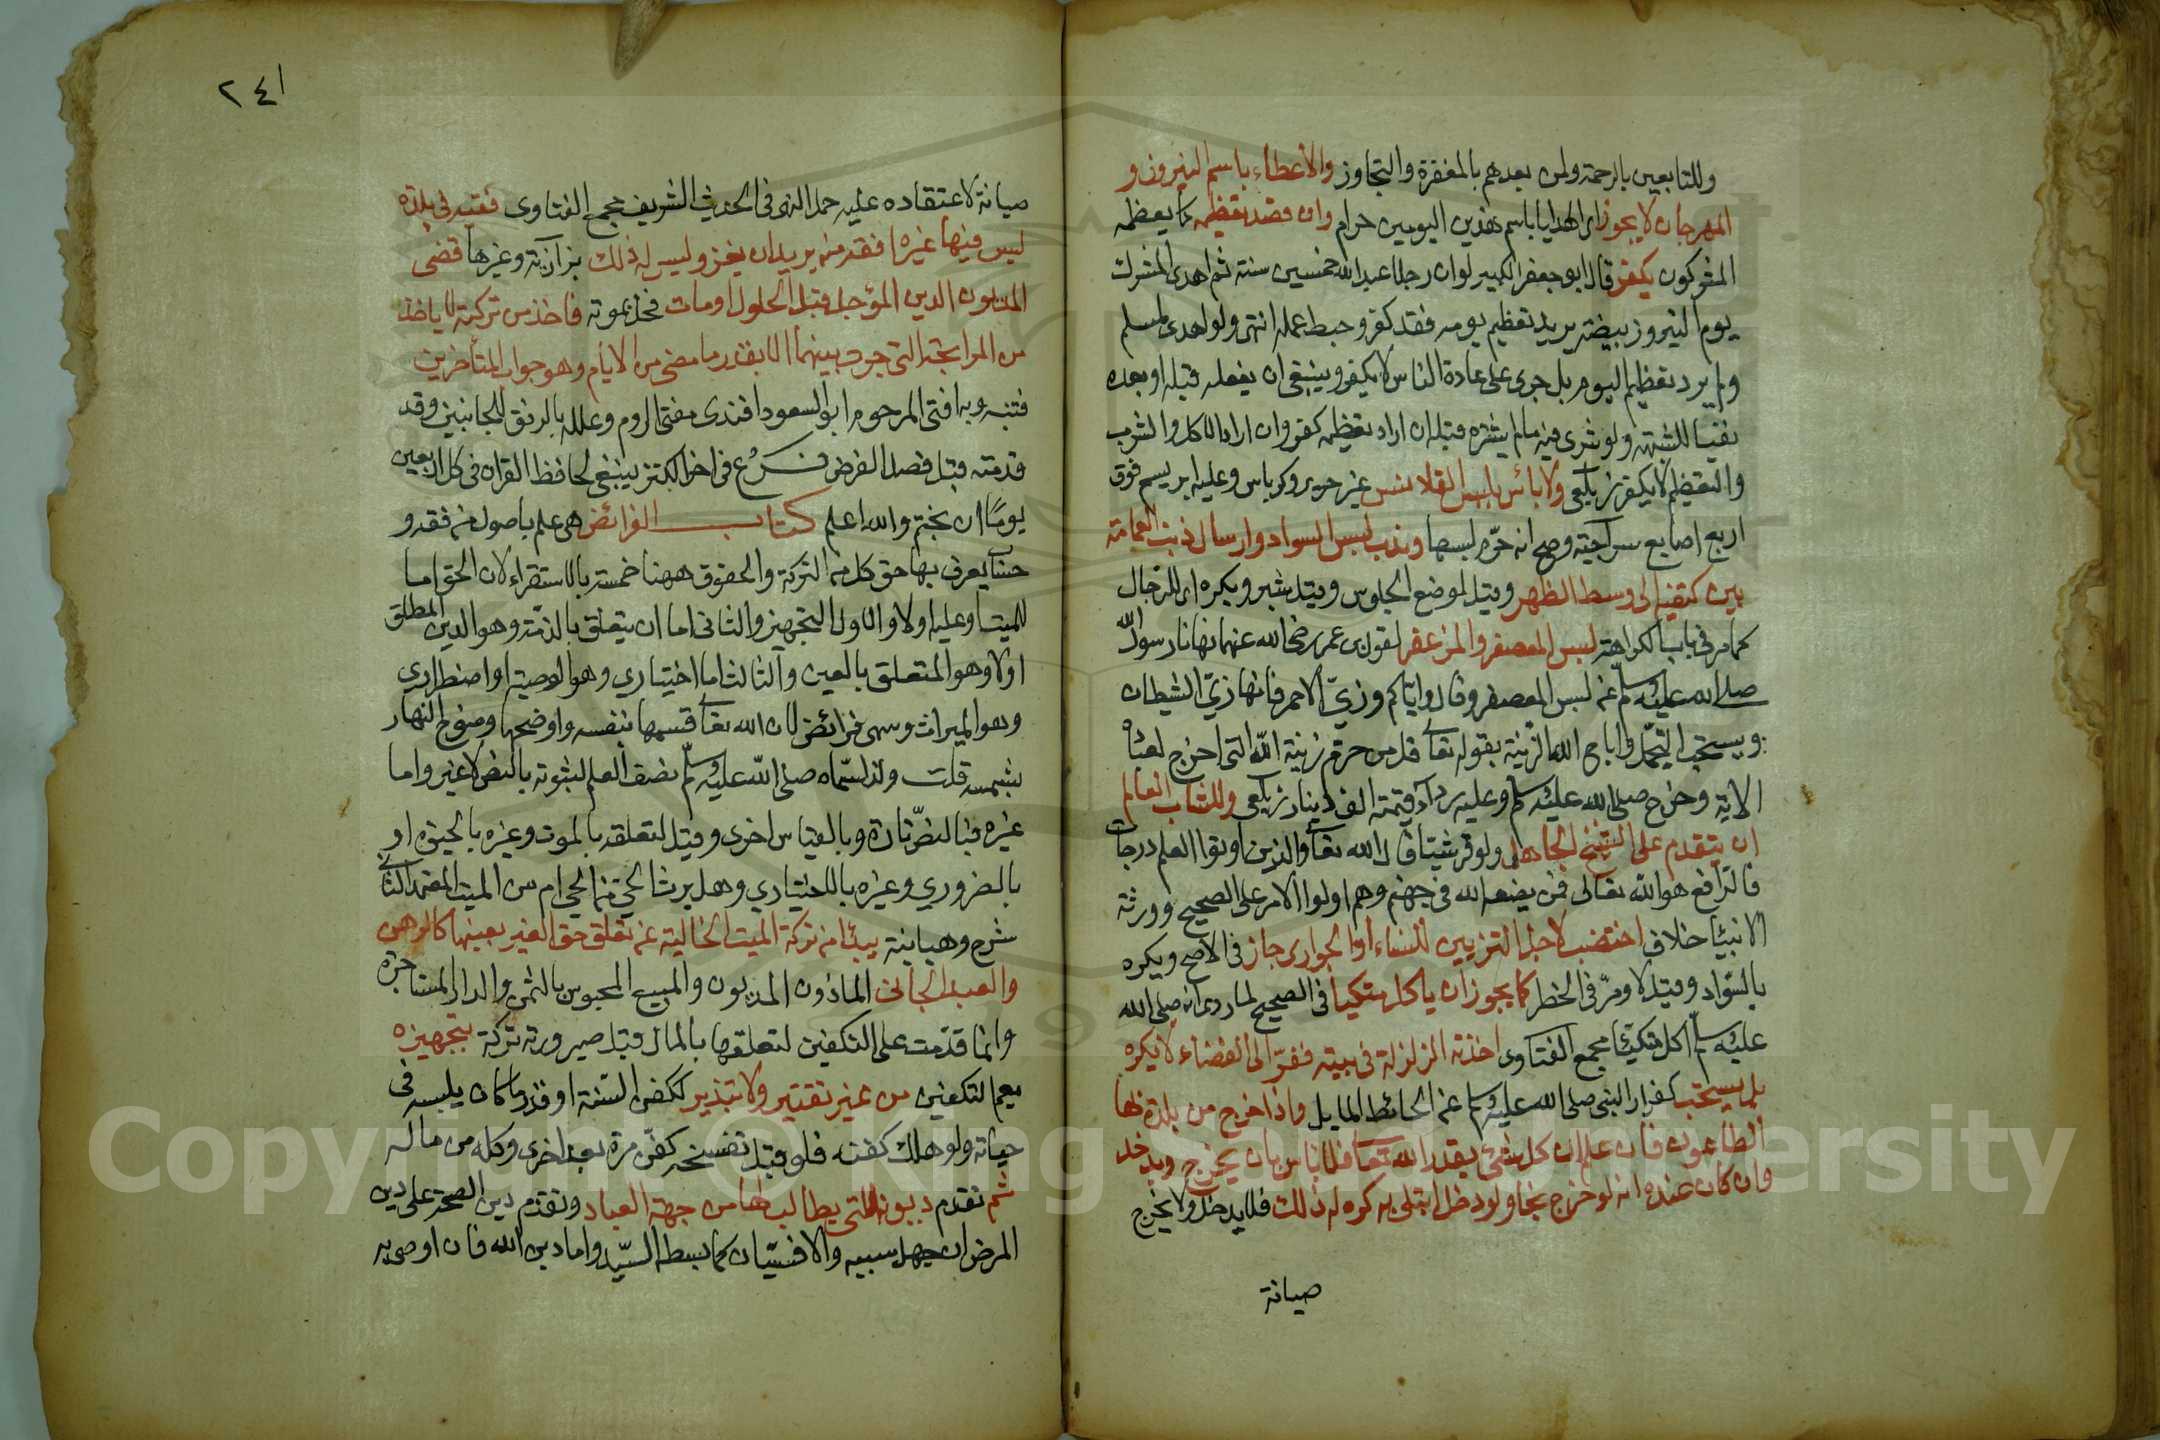 وللتابعين بالرحمة ولمن بعدهم بالمغفرة والتجاوز والأعطاء باسم النيروز و
المهرجان لا يجوز اى الهدايا باسم هذين اليومين حرام وان قصد تعظيمه كما يعظمه
المشركون يكفر قال ابو جعفر الكبير لو ان رجلا عبد الله خمسين سنة ثم اهدى لمشرك
يوم النيروز بيضة يريد تعظيم يومه فقد كفر وحبط عمله انتهى ولو اهدى لمسلم
ولم يرد تعظيم اليوم بل جرى على عادة الناس لا يكفر وينبغى ان يفعله قبله او بعده
نفيا للشبهة ولو شرى فيه مالم يشتره قبله ان اراد تعظيمه كفر وان اراد الاكل والشرب
والتنعيم لا يكفر زيلعى ولا بأس بلبس القلانس غير حرير وكرباس وعليه ابريسم فوق
اربع اصابع سراجية وصح انه حرم لبسها وندب لبس السواد وارسال ذنب العمامة
بين كتفيه الى وسط الظهر وقيل لموضع الجلوس وقيل شبر ويكره اى للرجال
كما مر فى باب الكراهة لبس المعصفر والمزعفر لقول بن عمر رضى الله عنهما نهانا رسول الله
صلى الله عليه وسلم عن لبس المعصفر وقال واياكم وزيّ الاحمر فانها زيّ الشيطان
ويستحب التجمل واباح الله الزينة بقوله تعالى قل من حرم زينة الله التى اخرج لعباده
الاية وخرج صلى الله عليه وسلم وعليه رداء قيمته الف دينار زيلعى وللشاب العالم
ان يتقدم على الشيخ الجاهل ولو قرشيا قال الله تعالى والذين اوتوا العلم درجات
فالرافع هو الله تعالى فمن يضعه الله فى جهنم وهم اولوا الامر على الصحيح وورثة
الانبيا خلاف اختضب لاجل التزيين للنساء او الجوارى جاز فى الاصح ويكره
بالسواد وقيل لا ومرّ فى الحظر كما يجوز ان ياكل متكيا فى الصحيح لما روى انه صلى الله
عليه وسلم اكل متكيا مجمع الفتاوى اخذته الزلزلة فى بيته ففرّ الى الفضاء لا يكره
بل يستحب كفرار النبى صلى الله عليه وسلم عن الحائط المايل واذا خرج من بلدة بها
الطاعون فان علم ان كل شئ بقدر الله تعالى فلا باس بان يخرج ويدخل
وان كان عنده انه لو خرج نجا ولو دخل ابتلى به كره له ذلك فلا يدخل ولا يخرج
صيانة
٢٤١
صيانة لاعتقاده عليه حمل النهى فى الحديث الشريف مجمع الفتاوى فقيه فى بلدة
ليس فيها غيره افقه منه يريد ان يغزو ليس له ذلك بزازية وغيرها قضى
المديون الدين المؤجل قبل الحلول او مات فحل بموته فاخذ من تركته لا ياخذ
من المرابحة التى جرت بينهما الا بقدر ما مضى من الايام وهو جواب المتأخرين
قنيه وبه افتى المرحوم ابو السعود افندى مفتى الروم وعلله بالرفق للجانبين وقد
قدمته قبل فصل القرض فرع فى اخر الكنز ينبغى لحافظ القران فى كل اربعين
يومًا ان يختم والله اعلم كتاب الفرائض هى علم باصول من فقه و
حساب يعرف بها حق كل من التركة والحقوق ههنا خمسة بالاستقراء لان الحق اما
للميت او عليه او لا ولا الاول التجهيز والثانى اما ان يتعلق بالذمة وهو الدين المطلق
اولا وهو المتعلق بالعين والثالث اما اختيارى وهو الوصية او اضطرارى
وهو الميراث وسمى فرائض لان الله تعالى قسمها بنفسه واوضحها وضوح النهار
بشمسه قلت ولذا سمّاه صلى الله عليه وسلم نصف العلم لثبوته بالنص لا غير واما
غيره فبالنصّ تارة وبالقياس اخرى وقيل لتعلقه بالموت وغيره بالحيوة او
بالضروري وغيره بالاختياري وهل يرث الحى من الحى ام من الميت المعتمد الثانى
شرح وهبانية يبدأ من تركة الميت الخالية عن تعلق حق الغير بعينها كالرهن
والعبد الجانى الماذون المديون والمبيع المحبوس بالثمن والدار المستاجرة
وانما قدمت على التكفين لتعلقها بالمال قبل صيرورته تركة بتجهيزه
يعم التكفين من غير تقتير ولا تبذير ككفن السنة او قدر ما كان يلبسه فى
حياته ولو هلك كفنه فلو قبل تفسخه كفن مرة بعد اخرى وكله من ماله
ثم تقدم ديونه التى يطالب لها من جهة العباد وتقدم دين الصحة على دين
المرض ان جهل سببه والا فسيّان كما بسطه السيّد واما دين الله فان اوصى به
Copyright © King Saud University